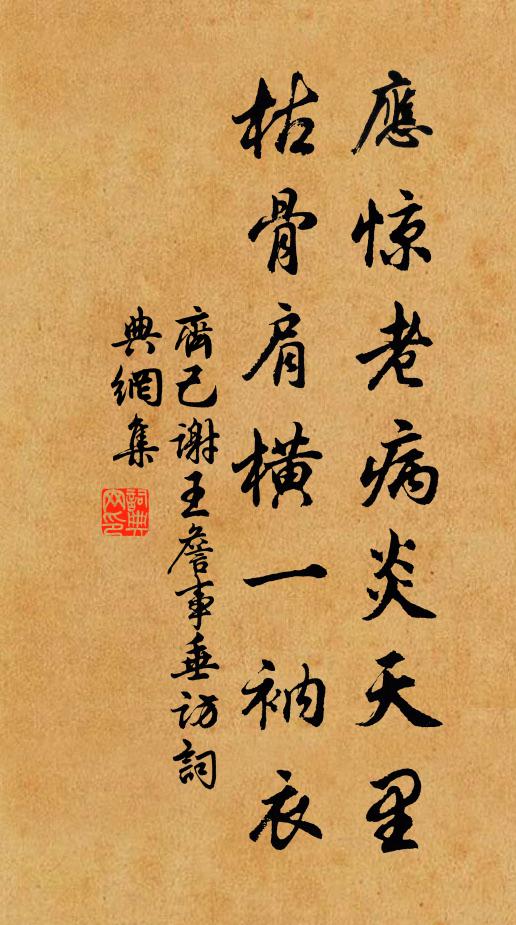 應惊老病炎天里
枯骨肩横一衲衣
齊己谢王詹事垂访詞
典網集
詞典網印